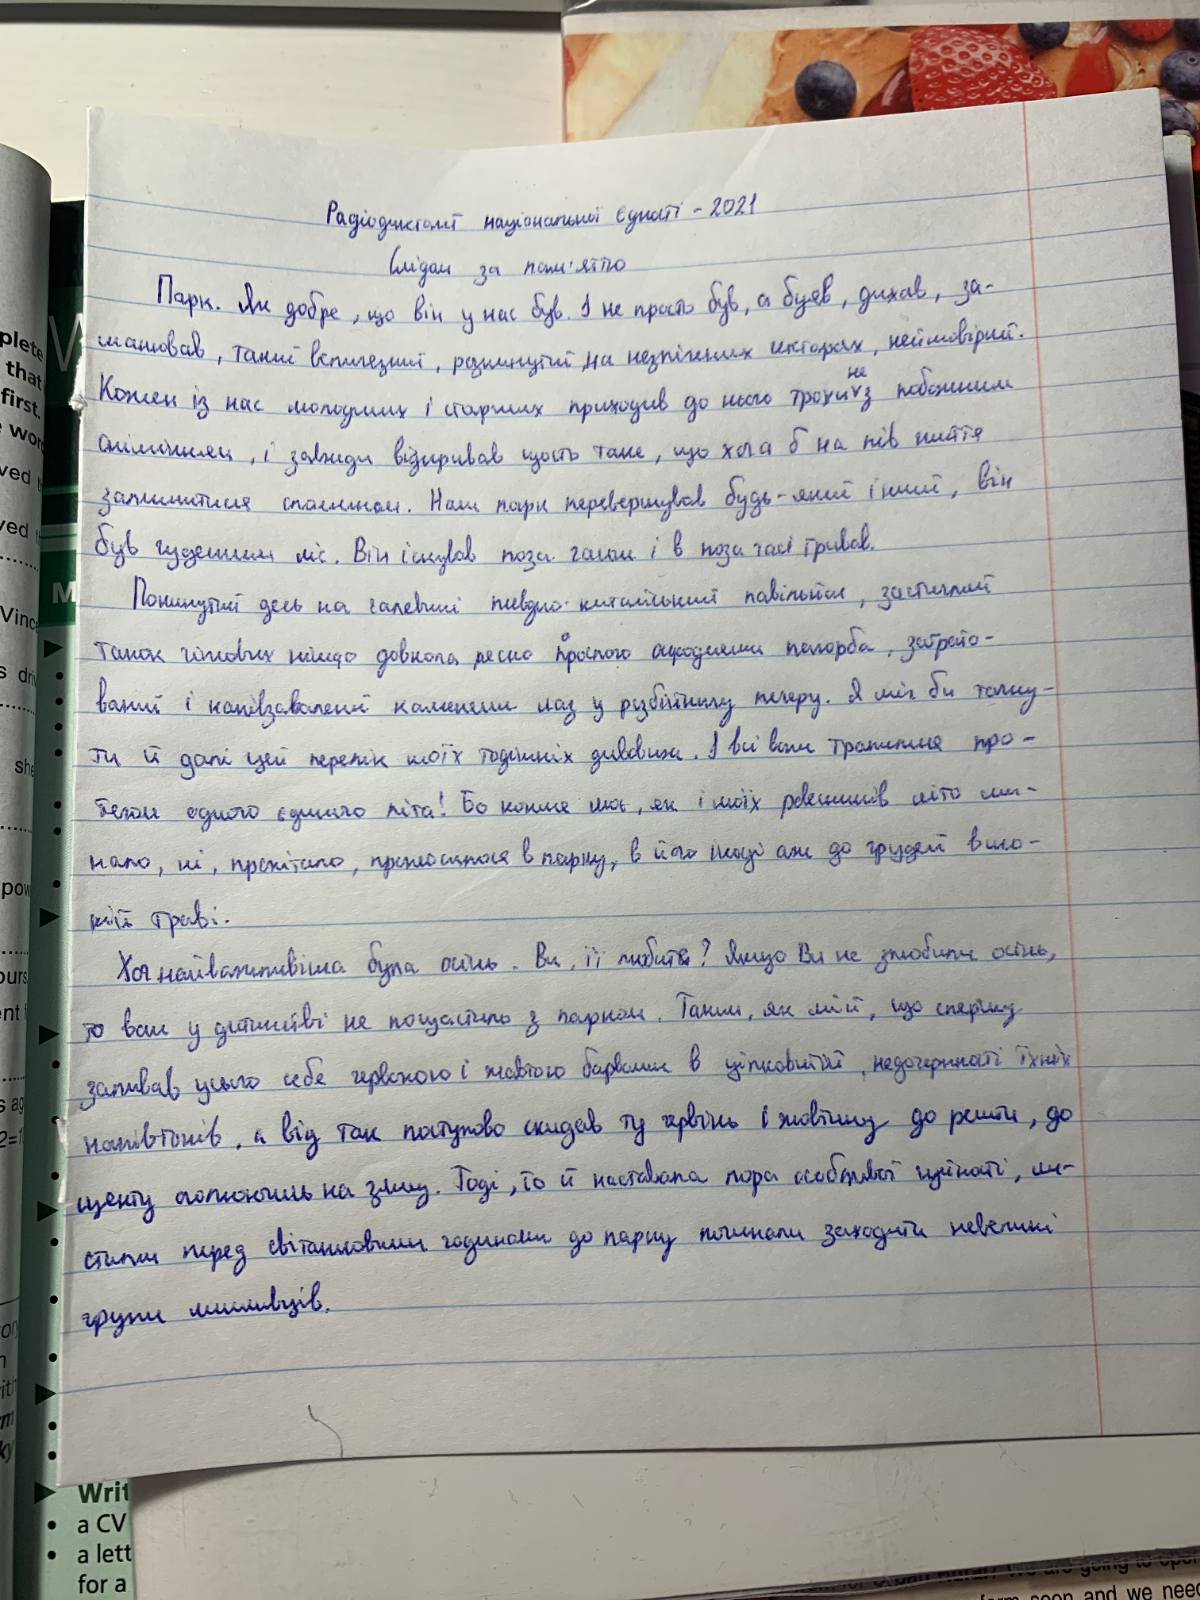 plete
that
first.
wor
ved
ved
Vinc
dri
she
pow
ours
ent
s ag
2=1
M
Радіодиктант національної єдності - 2021
Слідом за пам'яттю
Парк. Як добре, що він у нас був. І не прость був, а буяв, дихав, за-
манював, такий величезний, розкинутий на незлічених гекторах, неймовірний.
Кожен із нас молодших і старших приходив до нього трохи не з побожним
онімінням, і завжди відкривав щось таке, що хоча б на пів життя
залишитися спогадом. Наш парк перевершував будь-який інший, він
був чудешим ліс. Він існував поза часом і в поза часі тривав.
Покинутий десь на галявині псевдо-китайський павільйон, застиглий
танок гіпсових німф довкола рясно порослого пагорба, затрамбо-
ваний і напівзавалений камінням лаз у розбійницьку печеру. Я міг би тягну-
ти й далі цей перелік моїх тодішніх дивовиж. І всі вони трапилися про-
тягом одного єдиного літа! Бо кожне моє, як і моїх ровесників літо ми-
нало, ні, пролітало, проносилося в парку, в його іноді аж до грудей висо-
кій траві.
Хоч найважливіша була осінь. Ви, її любите? Якщо Ви не злюбили осінь,
то вам у дитинстві не пощастило з парком. Таким, як мій, що спершу
заливав усього себе червоною і жовтою барвами в цілковитій, недоторкності їхніх
напівтонів, а від так поступово скидав ту червінь і жовтизну до решти, до
щенту оголюючись на зиму. Тоді, то й наставала пора особливої цінності, ли-
стими перед світанковими годинами до парку починали заходити невеликі
групи мисливців.
Writ
• a CV
• a lett
for a
soon and we need